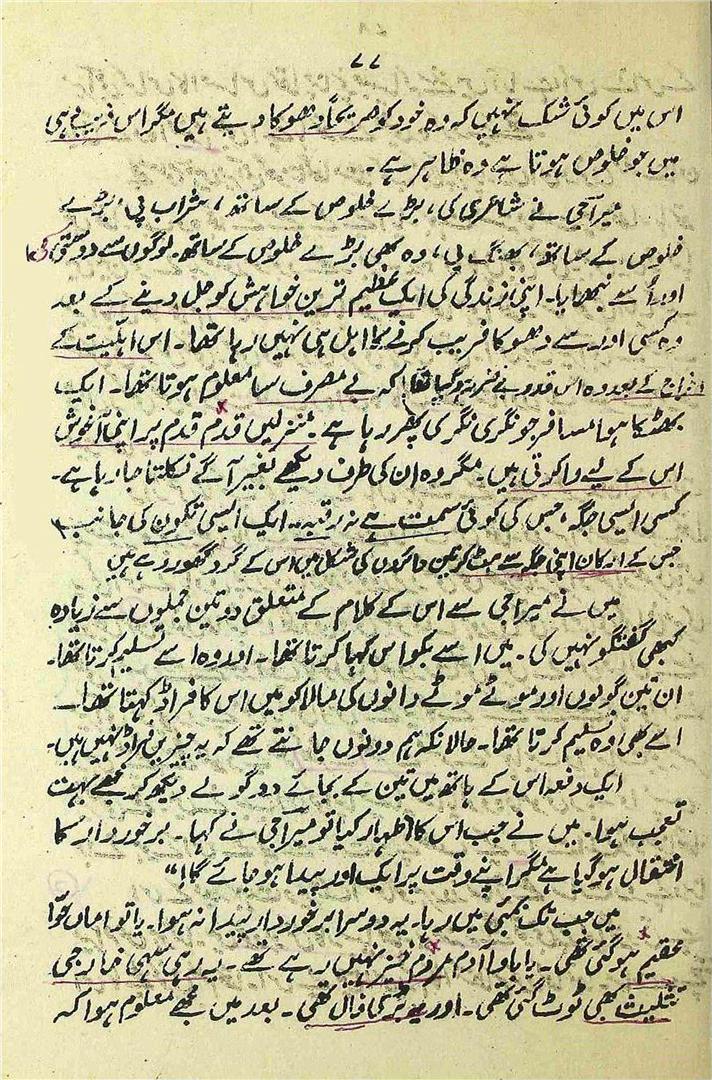 ۷۷
اس میں کوئی شک نہیں کہ وہ خود کو صریحاً دھوکا دیتے ہیں مگر اس فریب ہی
میں جو خلوص ہوتا ہے وہ ظاہر ہے۔
میراجی نے شاعری کی، بڑے خلوص کے ساتھ، شراب پی، بڑے
خلوص کے ساتھ، بھنگ پی، وہ بھی بڑے خلوص کے ساتھ۔ لوگوں سے دوستی کی،
اور اُسے نبھایا۔ اپنی زندگی کی ایک عظیم ترین خواہش کو جل دینے کے بعد
وہ کسی اور سے دھوکا فریب کرنے کا اہل ہی نہیں رہا تھا۔ اس اہلیت کے
اخراج کے بعد وہ اس قدر بے ضرر ہو گیا تھا کہ بے مصرف سا معلوم ہوتا تھا۔ ایک
بھٹکا ہوا مسافر جو نگری نگری پھر رہا ہے۔ منزلیں قدم قدم پر اپنی آغوش
اس کے لیے وا کرتی ہیں۔ مگر وہ ان کی طرف دیکھے بغیر آگے نکلتا جا رہا ہے۔
کسی ایسی جگہ، جس کی کوئی سمت ہے نہ رقبہ۔ ایک ایسی تکون کی جانب
جس کے ارکان اپنی جگہ سے ہٹ کر تین دائروں کی شکل میں اس کے گرد گھوم رہے ہیں
میں نے میراجی سے اس کے کلام کے متعلق دو تین جملوں سے زیادہ
کبھی گفتگو نہیں کی۔ میں اسے بکواس کہا کرتا تھا۔ اور وہ اسے تسلیم کرتا تھا۔
ان تین گولوں اور موٹے موٹے دانوں کی مالا کو میں اس کا فراڈ کہتا تھا۔
اسے بھی وہ تسلیم کرتا تھا۔ حالانکہ ہم دونوں جانتے تھے کہ یہ چیزیں فراڈ نہیں ہیں۔
ایک دفعہ اس کے ہاتھ میں تین کے بجائے دو گولے دیکھ کر مجھے بہت
تعجب ہوا۔ میں نے جب اس کا اظہار کیا تو میراجی نے کہا۔ برخوردار کا
انتقال ہو گیا ہے مگر اپنے وقت پر ایک اور پیدا ہو جائے گا!“
میں جب تک بمبئی میں رہا۔ یہ دوسرا برخوردار پیدا نہ ہوا۔ یا تو اماں حوّا
عقیم ہو گئی تھی۔ یا باوا آدم مردم خیز نہیں رہے تھے۔ یہ رہی سہی خارجی
تثلیث بھی ٹوٹ گئی تھی۔ اور یہ بُری فال تھی۔ بعد میں مجھے معلوم ہوا کہ